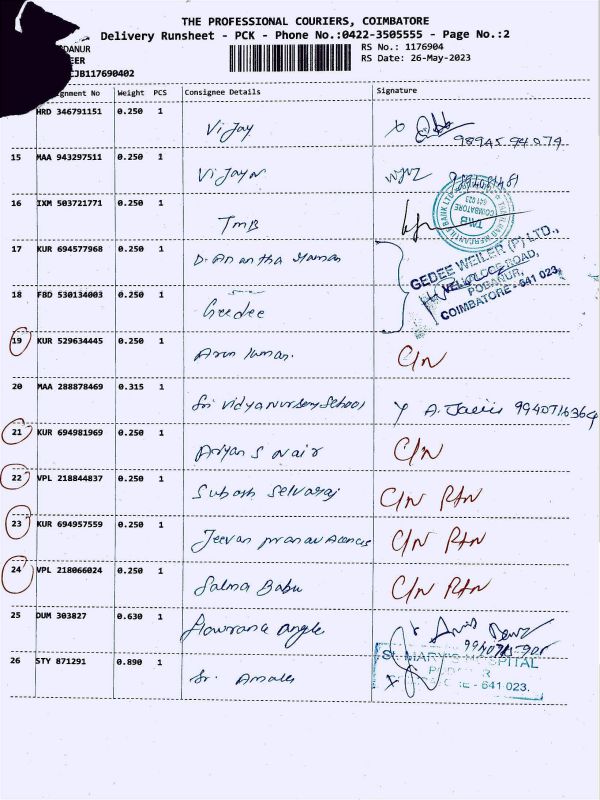 THE PROFESSIONAL COURIERS, COIMBATORE
Delivery Runsheet - PCK - Phone No.:0422-3505555 - Page No.:2
DANUR RS No.: 1176904
EER RS Date: 26-May-2023
CJB117690402
gnment No Weight PCS Consignee Details Signature
HRD 346791151 0.250 1 Vijay
98945 94079
15 MAA 943297511 0.250 1 Vijayn
16 IXM 503721771 0.250 1 TMB
TMB
COIMBATORE
641 023
17 KUR 694577968 0.250 1 D. Anantha
GEDEE WEILER (P) LTD.,
VELLALORE ROAD,
PODANUR,
COIMBATORE - 641 023.
18 FBD 530134003 0.250 1 Geedee
19 KUR 529634445 0.250 1 Arun kumar. C/N
20 MAA 288878469 0.315 1 Sri vidya nursery school A. 9940716364
21 KUR 694981969 0.250 1 Aryan S Nair C/N
22 VPL 218844837 0.250 1 Subash Selvaraj C/N RTN
23 KUR 694957559 0.250 1 Jeevan pranav C/N RTN
24 VPL 218066024 0.250 1 Salma Babu C/N RTN
25 DUM 303827 0.630 1 angle
26 STY 871291 0.890 1 Sr.
ST. MARY'S HOSPITAL
PODANUR
COIMBATORE - 641 023.